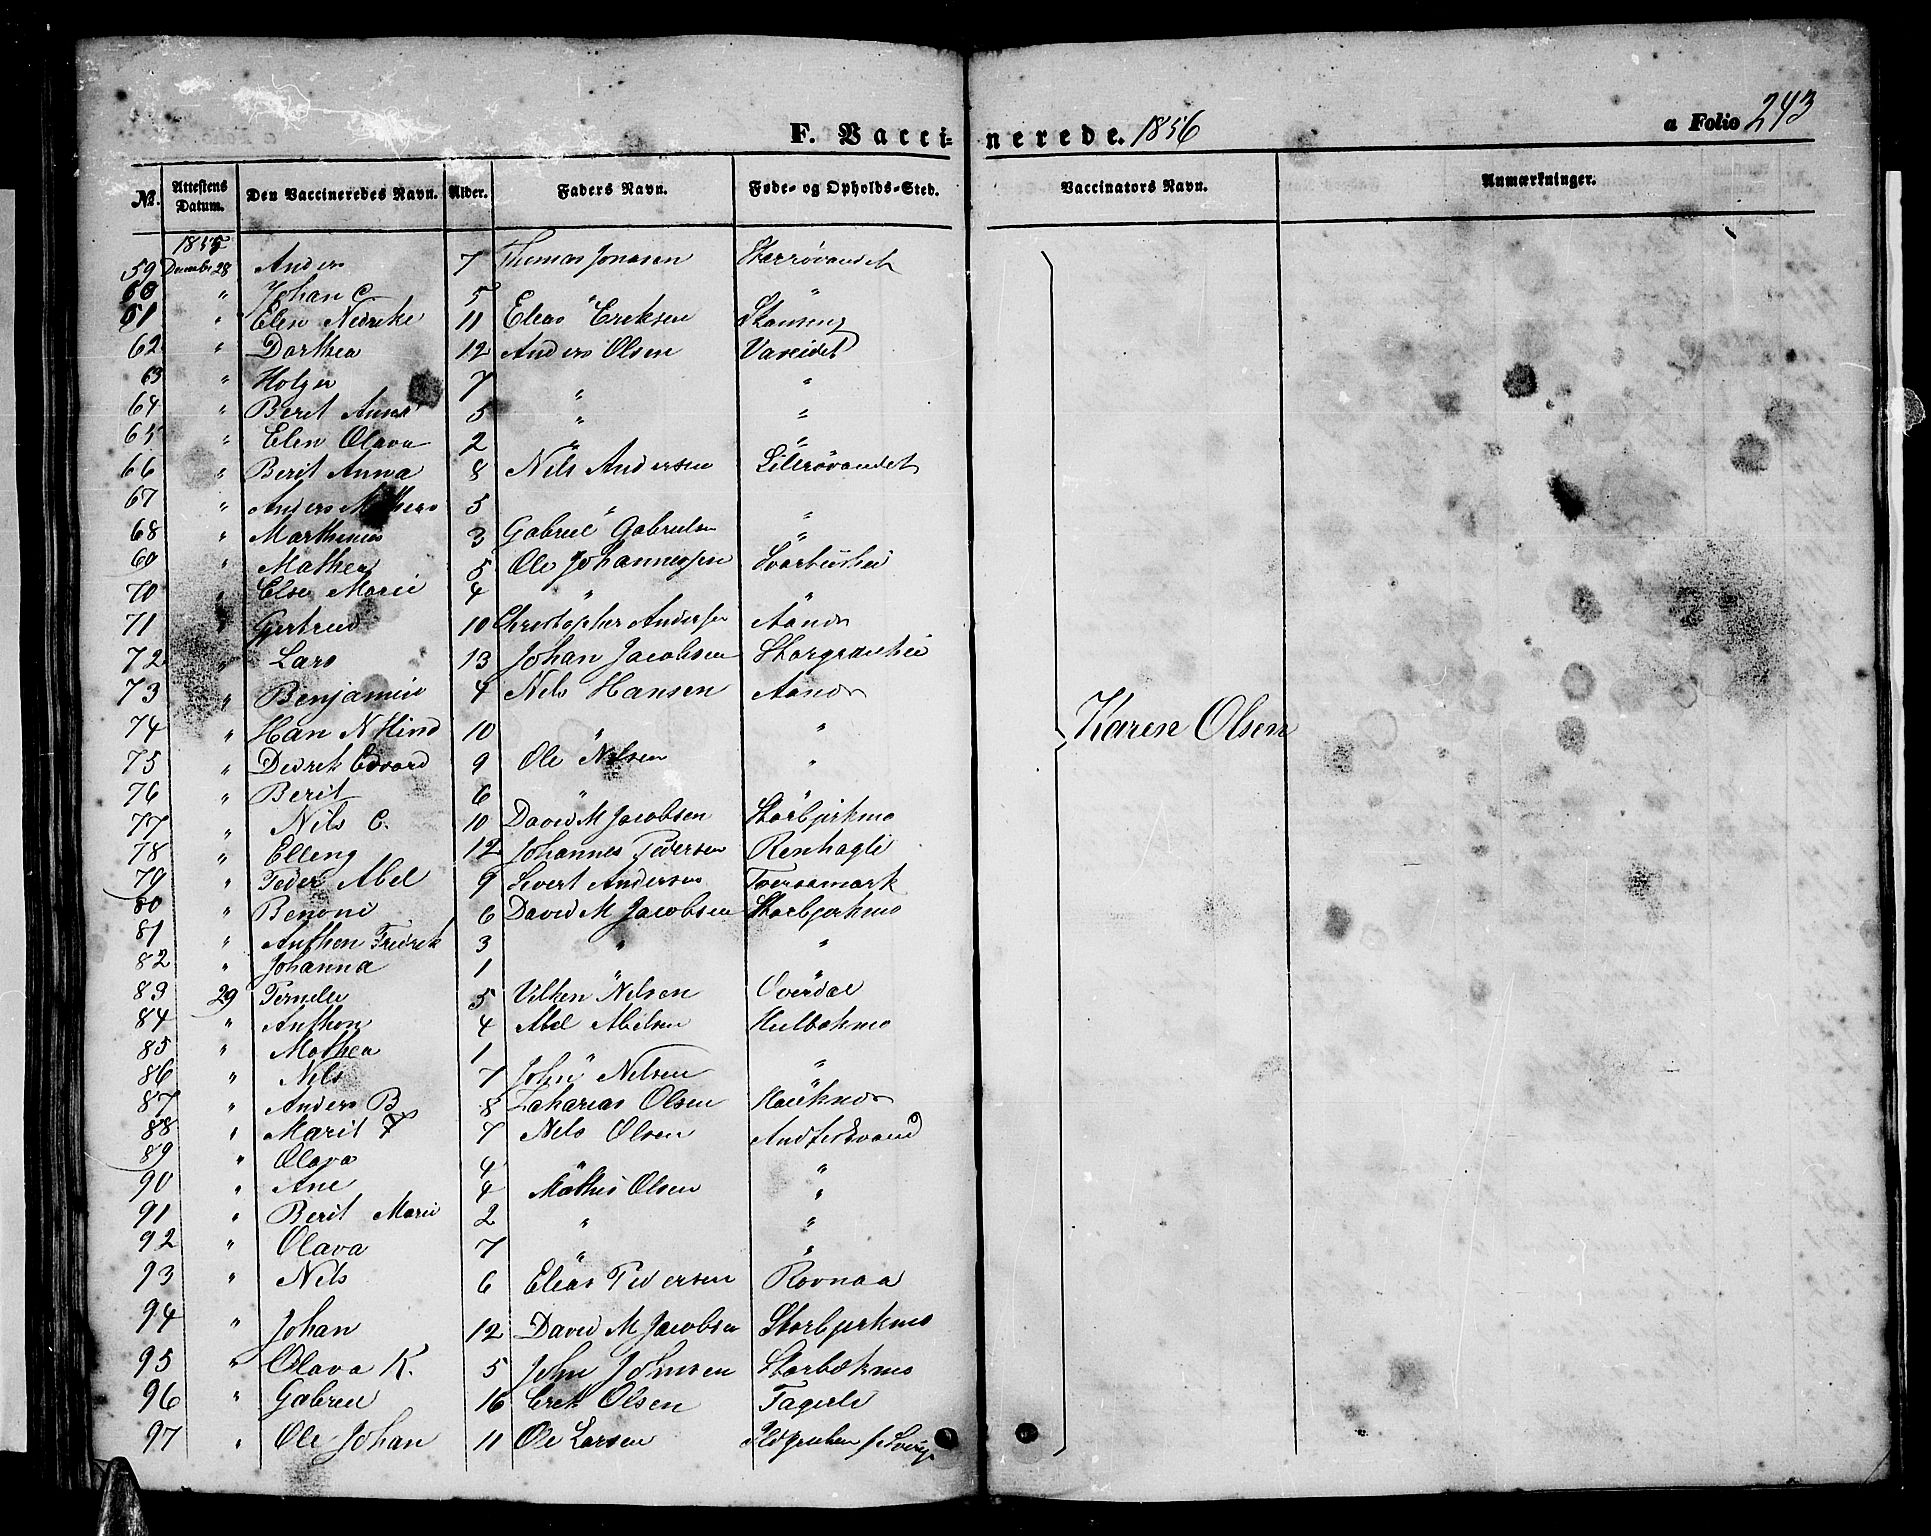 F. Vaccinerede. 1856
a Folio 243
No. Attestens Datum. Den Vaccineredes Navn. Alder. Faders Navn. Føde- og Opholds-Sted. Vaccinators Navn. Anmærkninger.
1855
59 December 28 Anders 7 Thomas Jonasen Storrøvandet
60 " Johan C 5 " "
61 " Elen Nedreke 11 Elias Eriksen
62 " Dorthea 12 Anders Olsen Vareidet
63 " Holger 7 " "
64 " Berit Anna 5 " "
65 " Elen Olava 2 " "
66 " Berit Anna 8 Nils Andersen Lilerøvandet
67 " Anders 5 " "
68 " Marthinus 3 Gabriel Gabrielsen "
69 " Mathea 5 Ole Johannessen
70 " Else Marie 4 " "
71 " Gjertrud 10 Christopher Andersen Aanes
72 " Lars 13 Johan Jacobsen
73 " Benjamin 4 Nils Hansen Aanes
74 " Han N Hind 10 " "
75 " Dedrek Edvard 9 Ole Nilsen "
76 " Berit 6 " "
77 " Nils C. 10 David M Jacobsen Storbjerkmo
78 " Elleng 12 Johannes Pedersen Renhagli
79 " Peder Abel 9 Sivert Andersen Tveraamark
80 " Benoni 6 David M Jacobsen Storbjerkmo
81 " Anthon Fredrek 3 " "
82 " Johanna 1 "
83 29 Pernelle 5 Vilken Nilsen Overdal
84 " Anthon 4 Abel Abelsen
85 " Mathea 1 "
86 " Nils 7 John Nilsen "
87 " Anders B 8 Zakarias Olsen
88 " Marit 7 Nils Olsen
89 " Olava 4 " "
90 " Ane 4 Mathis Olsen "
91 " Berit Marie 2 " "
92 " Olava 7 " "
93 " Nils 6 Elias Pedersen Rovnaa
94 " Johan 12 David M Jacobsen Storbjerkmo
95 " Olava K. 5 John Johnsen
96 " Gabriel 16 Erek Olsen Fagerli
97 " Ole Johan 11 Ole Larsen
Karen Olsen